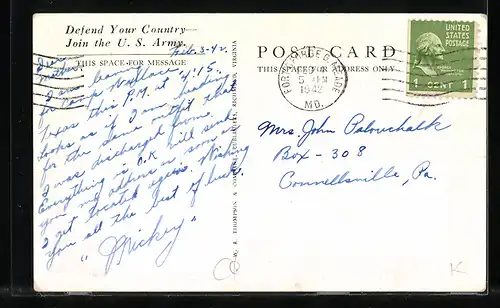 Defend Your Country—
Join the U. S. Army.
THIS SPACE FOR MESSAGE
Feb. 3-42.
Dear
Mother,
I am leaving
for Camp Wallace,
Texas this P.M. at 4:15.
Looks as if I am heading
for the same outfit that
I was discharged from.
Everything is O.K. Will send
you my address as soon as
I get located again. Wishing
you all the best of luck.
"Mickey"
W. R. THOMPSON & COMPANY, PUBLISHERS, RICHMOND, VIRGINIA
POST CARD
THIS SPACE FOR ADDRESS ONLY
FORT GEORGE G. MEADE
FEB
5 PM
1942
MD.
UNITED
STATES
POSTAGE
1 CENT 1
Mrs. John Palouchalk
Box - 308
Connellsville, Pa.
K